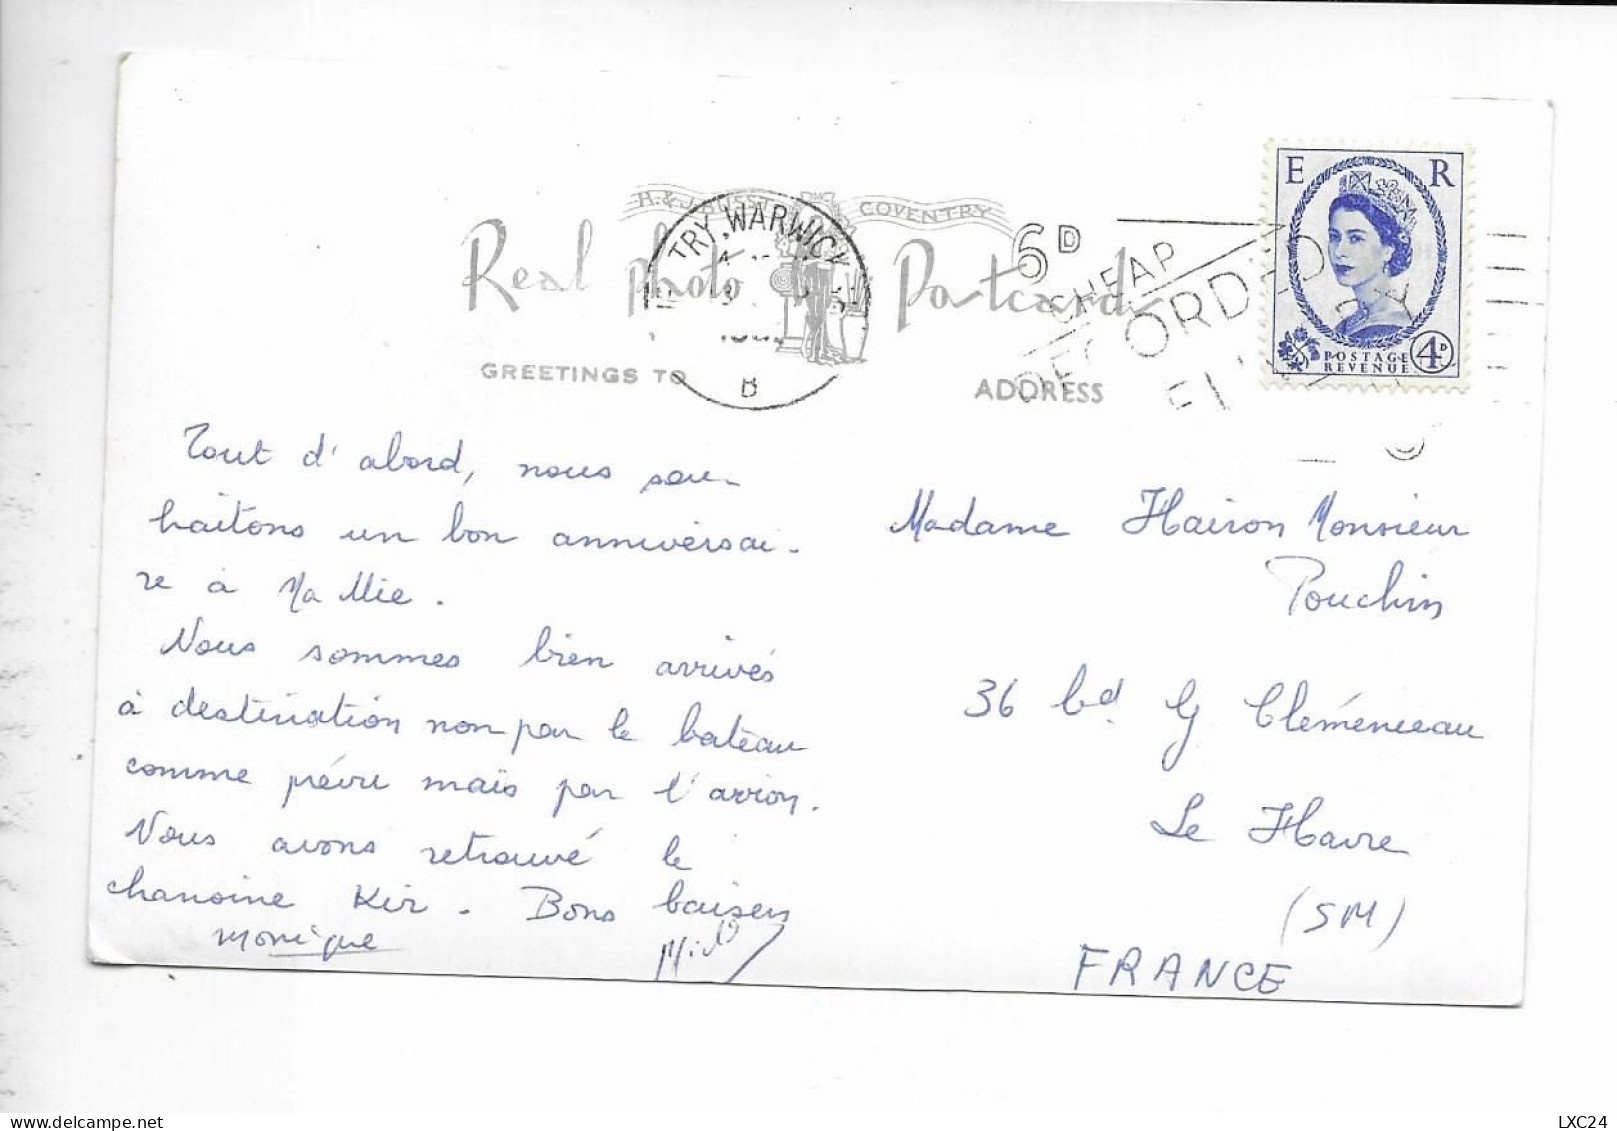 H. & J. BUSST COVENTRY
Real Photo Postcard
GREETINGS TO
ADDRESS
TRY, WARWICK
B
6D
CHEAP
RECORDED
E R
POSTAGE
REVENUE
4D
Tout d'abord, nous sou-
haitons un bon anniversai-
re à Ma Mie.
Nous sommes bien arrivés
à destination non par le bateau
comme prévu mais par l'avion.
Nous avons retrouvé le
chanoine Kir. Bons baisers
Monique
Madame Hairon Monsieur
Pouchin
36 bd G Cleménceau
Le Havre
(SM)
FRANCE
LXC24